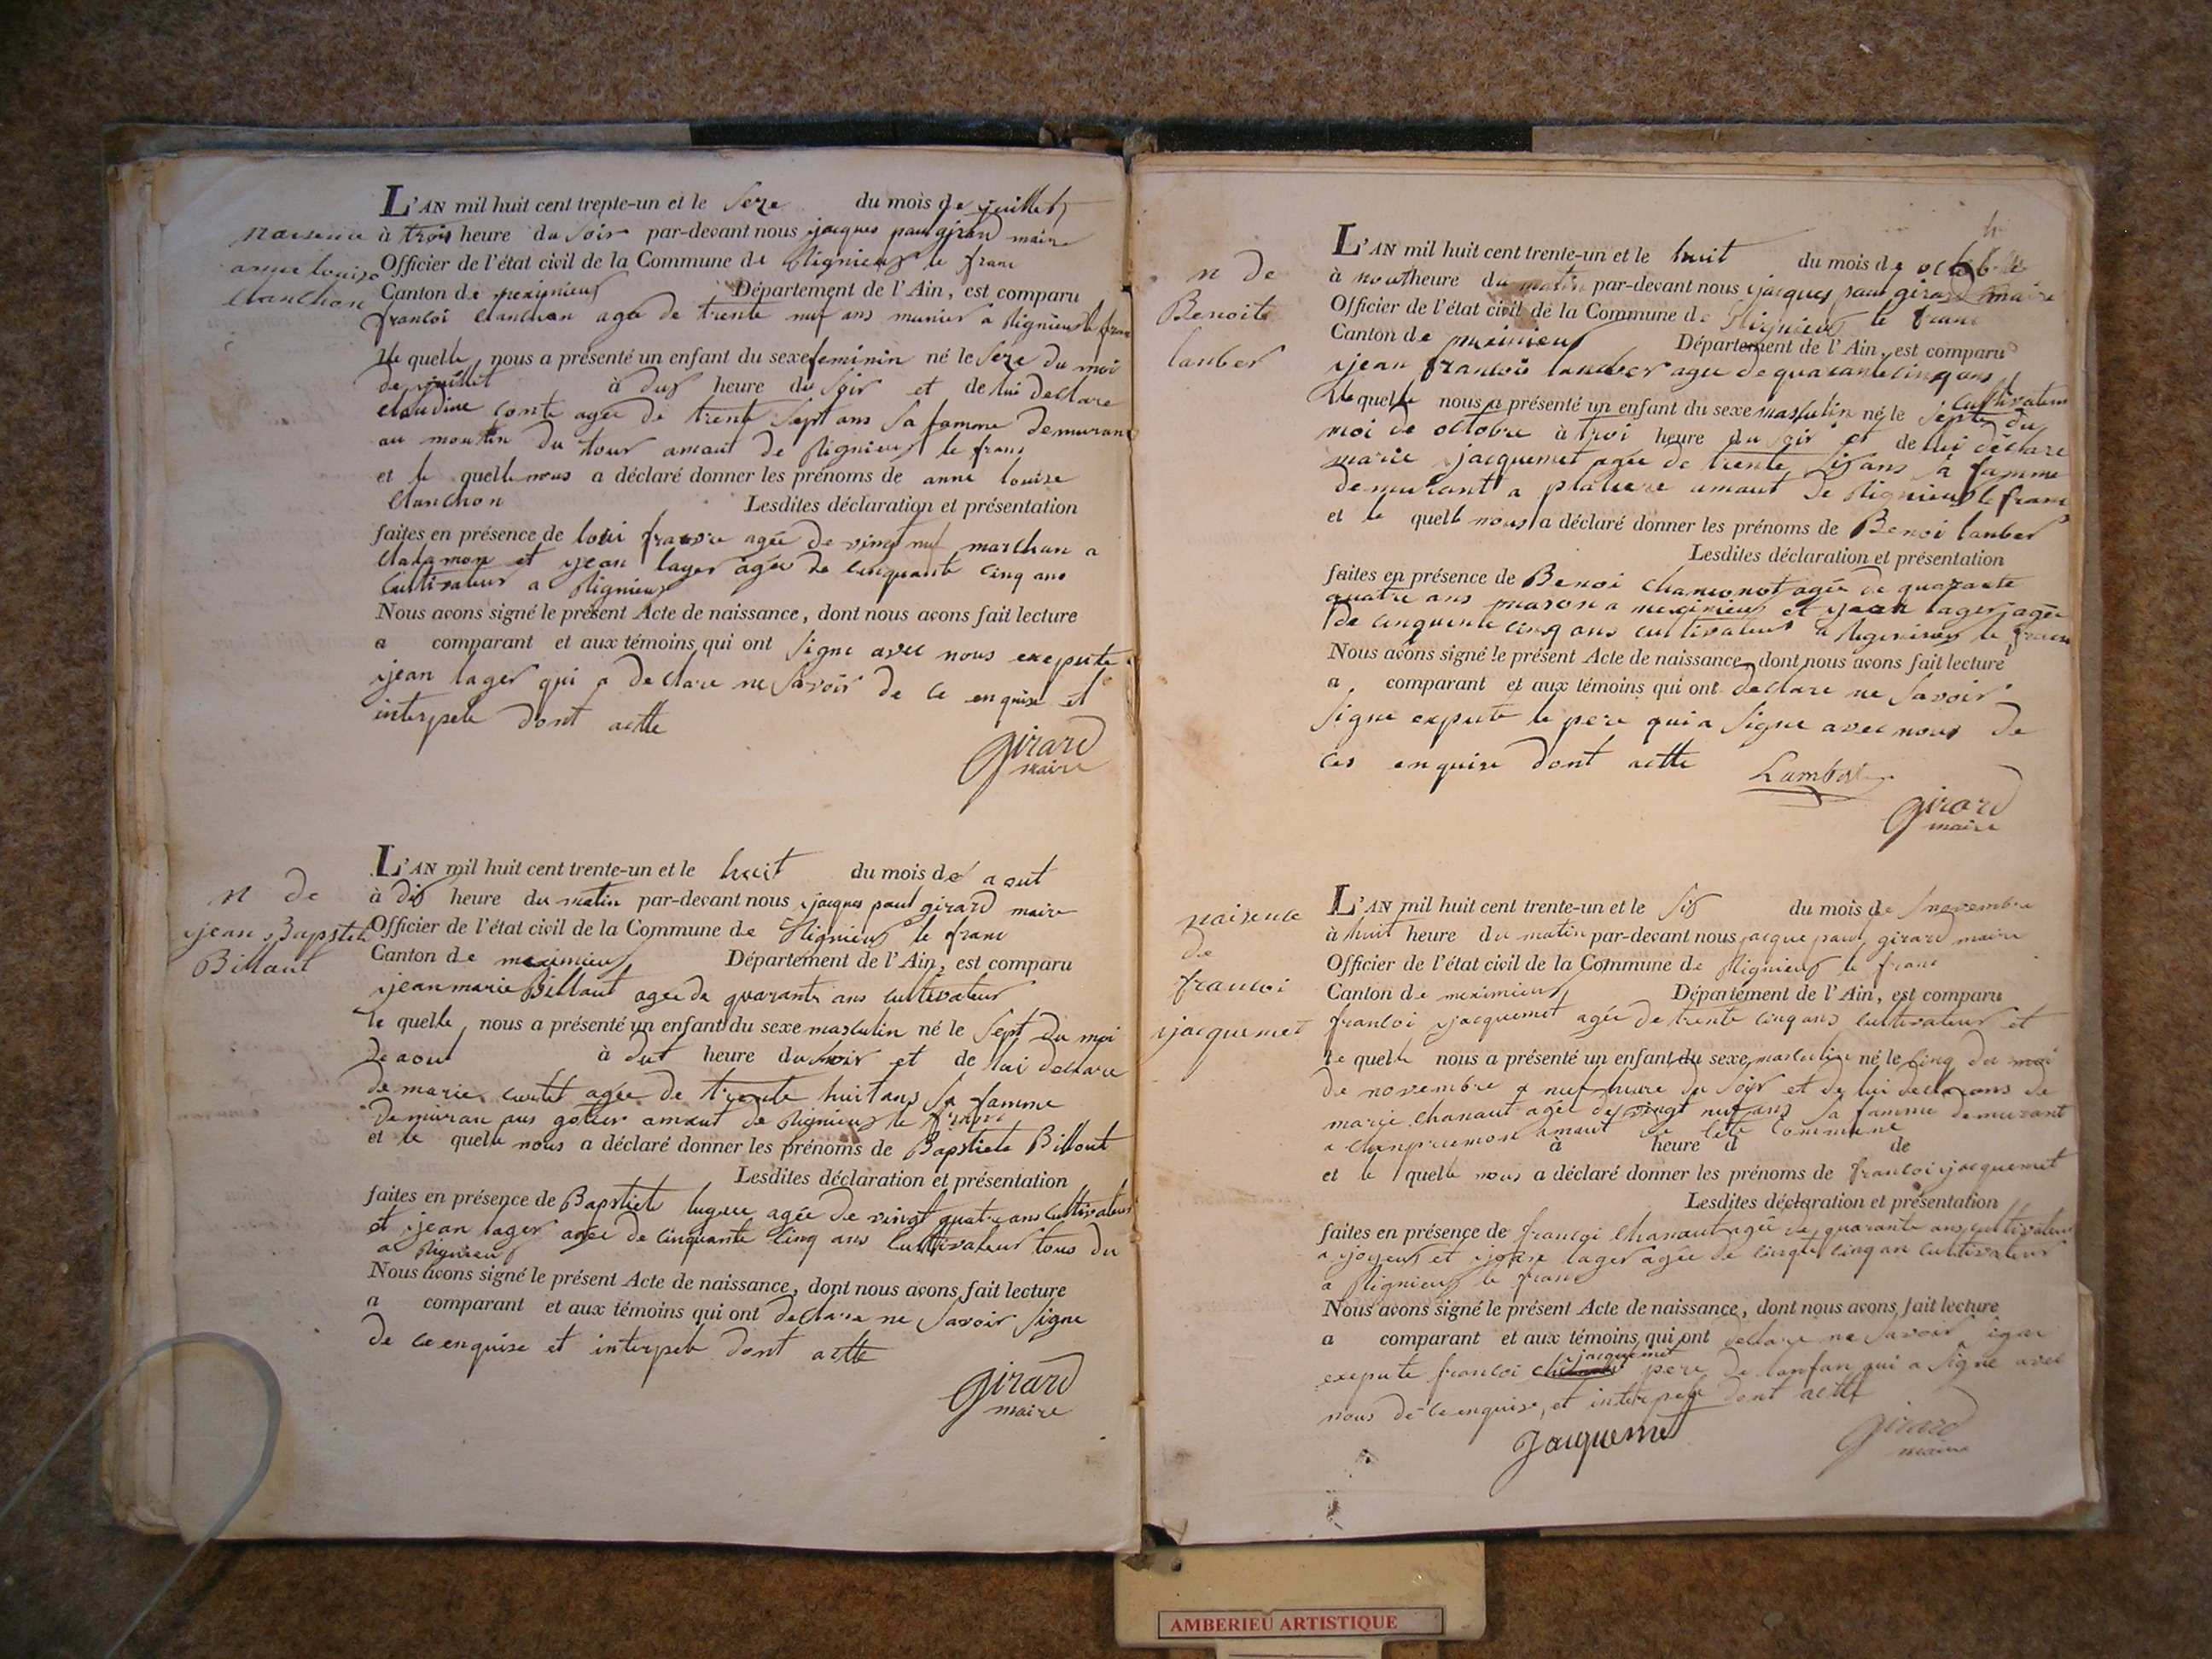 naisence
anne louise
Clanchon
L'AN mil huit cent trente-un et le seze du mois de juillet
à trois heure du soir par-devant nous jacques paul girard maire
Officier de l'état civil de la Commune de Rignieux le franc
Canton de meximieux Département de l'Ain, est comparu
francoi Clanchon agée de trente nuf ans munier a Rignieux le franc
le quelle nous a présenté un enfant du sexe feminin né le seze du moi
de juillet à dux heure du soir et de lui declare
claudine conte agée de trente sept ans sa famme demurant
au moulin du tour amaut de Rignieux le franc
et le quelle nous a déclaré donner les prénoms de anne louise
Clanchon Lesdites déclaration et présentation
faites en présence de loui fravre agée de vingt nuf marchan a
Chalamon et jean lager agée de cinquante cinq ans
Cultivateur a Rignieux
Nous avons signé le présent Acte de naissance, dont nous avons fait lecture
a comparant et aux témoins qui ont signe avec nous exepute
jean lager qui a declare ne savoir de ce enquise et
interpele dont actte
girard
maire
n de
jean Bapstiete
Billaut
L'AN mil huit cent trente-un et le huit du mois de aout
à dix heure du matin par-devant nous jacques paul girard maire
Officier de l'état civil de la Commune de Rignieux le franc
Canton de meximieux Département de l'Ain, est comparu
jean marie Billaut agée de quarante ans cultivateur
le quelle nous a présenté un enfant du sexe masculin né le sept du moi
de aout à heure du soir et de lui declare
de marie curtet agée de trente huit ans sa famme
demuran aus amaut de Rignieux le franc
et le quelle nous a déclaré donner les prénoms de Bapstiete Billout
Lesdites déclaration et présentation
faites en présence de Bapstiete agée de vingt quatre ans cultivateur
et jean lager agée de cinquante cinq ans Cultivateur tous du
a Rignieux
Nous avons signé le présent Acte de naissance, dont nous avons fait lecture
a comparant et aux témoins qui ont declare ne savoir signe
de ce enquise et interpele dont actte
girard
maire
n de
Benoite
lanber
L'AN mil huit cent trente-un et le huit du mois de octobre
à heure du matin par-devant nous jacques paul girard maire
Officier de l'état civil de la Commune de Rignieux le franc
Canton de meximieux Département de l'Ain, est comparu
jean francois lanber agée de quarante cinq ans
cultivateur
le quelle nous a présenté un enfant du sexe masculin né le sept du
moi de octobre à troi heure du soir et de lui déclare
marie jacquemet agée de trente six ans sa famme
demurant a platiere amaut de Rignieux le franc
et le quelle nous a déclaré donner les prénoms de Benoi lanber
Lesdites déclaration et présentation
faites en présence de Benoi chanconot agée de quarante
quatre ans mason a meximieux et jean lager agée
de cinquente cinq ans cultivateur a Rignieux le franc
Nous avons signé le présent Acte de naissance, dont nous avons fait lecture
a comparant et aux témoins qui ont declare ne savoir
signe expute le pere qui a signe avec nous de
ces enquise dont actte Lambert
girard
maire
naisence
de
francoi
jacquemet
L'AN mil huit cent trente-un et le six du mois de novembre
à huit heure du matin par-devant nous jacque paul girard maire
Officier de l'état civil de la Commune de Rignieux le franc
Canton de meximieux Département de l'Ain, est comparu
francoi jacquemet agée de trente cinq ans cultivateur et
le quelle nous a présenté un enfant du sexe masculin né le cinq du moi
de novembre a nuf heure du soir et de lui declarons de
marie chanaut agée de vingt nuf ans sa famme demurant
a amaut de Commune
à heure d de
et le quelle nous a déclaré donner les prénoms de francoi jacquemet
Lesdites déclaration et présentation
faites en présence de francoi Chanaut agée de quarante ans cultivateur
a joyeux et jean lager agée de cinq an cultivateur
a Rignieux le franc
Nous avons signé le présent Acte de naissance, dont nous avons fait lecture
a comparant et aux témoins qui ont declare ne savoir signe
exepute francoi jacquemet pere de lanfan qui a signe avec
nous de ce enquise, et interpele dont actte
Jacquemet girard
maire
AMBERIEU ARTISTIQUE